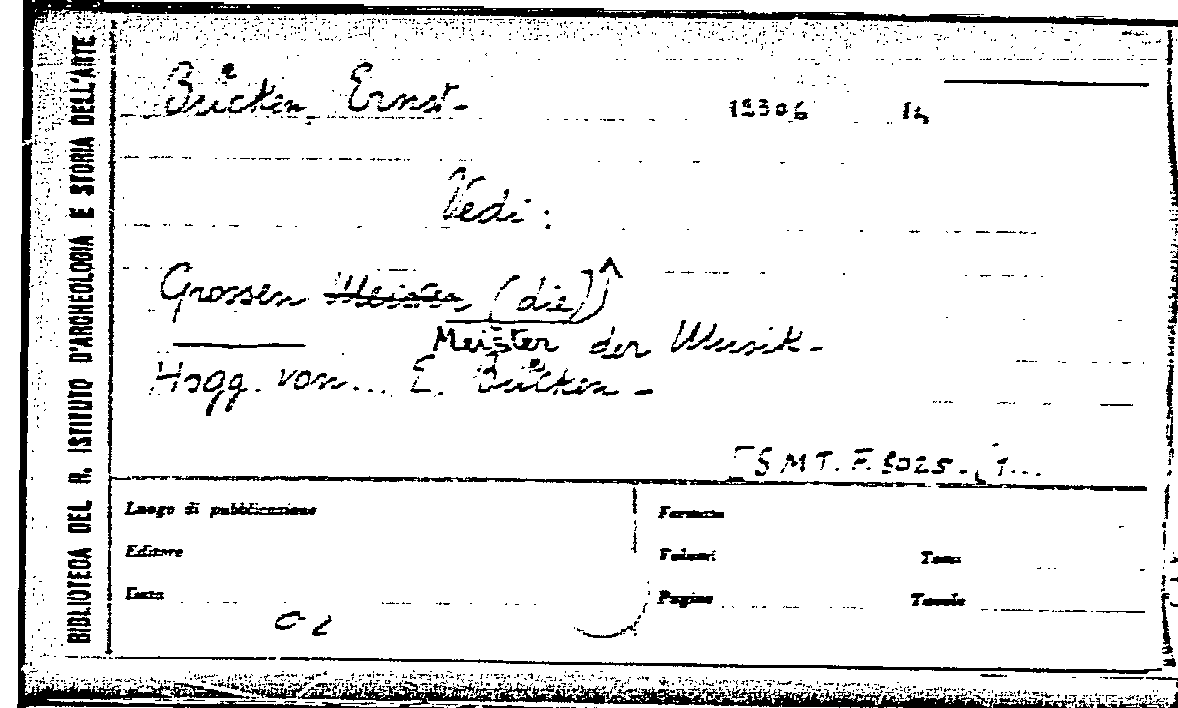 BIBLIOTECA DEL R. ISTITUTO D'ARCHEOLOGIA E STORIA DELL'ARTE
Brücken, Ernst- 15306 14
Vedi:
Grossen Meister (die)
Meister der Musik-
Hsgg. von... E. Brücken-
[S. M. T. F. 5025. (1...
Luogo di pubblicazione Formato
Editore Volumi Tomi
Data Pagine Tavole